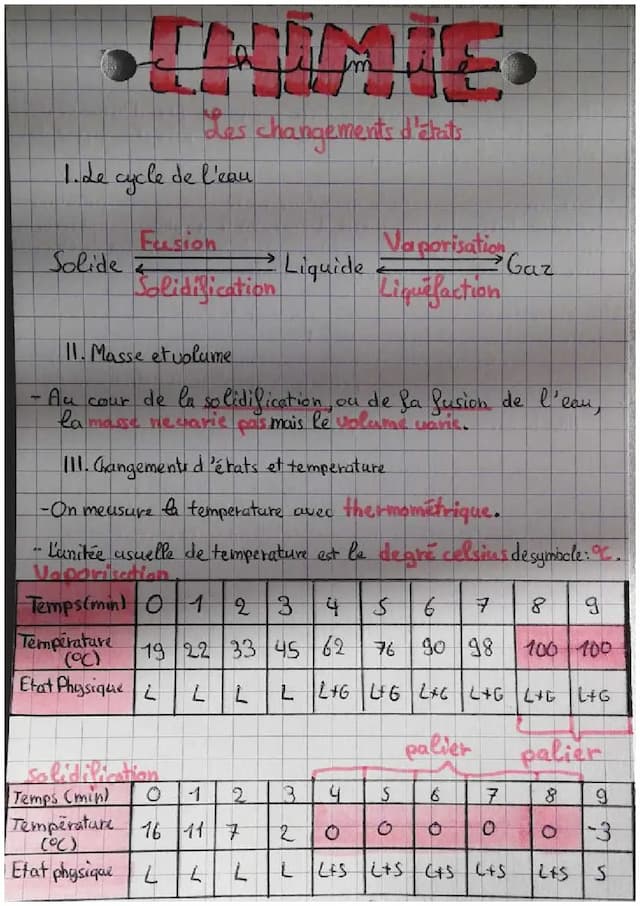 CHIMIE
chimie
Les changements d'états
I. Le cycle de l'eau
Fusion Vaporisation
Solide Liquide Gaz
Solidification Liquéfaction
II. Masse et volume
- Au cour de la solidification, ou de la fusion de l'eau,
la masse ne varie pas mais le volume varie.
III. Changements d'états et temperature
- On meusure la temperature avec thermométrique.
- L'unitée usuelle de temperature est le degré celsius de symbole: °C.
Vaporisation
Temps (min) 0 1 2 3 4 5 6 7 8 9
Température (°C) 19 22 33 45 62 76 90 98 100 100
Etat Physique L L L L L+G L+G L+G L+G L+G L+G
palier palier
Solidification
Temps (min) 0 1 2 3 4 5 6 7 8 9
Température (°C) 16 11 7 2 0 0 0 0 0 -3
Etat physique L L L L L+S L+S L+S L+S L+S S